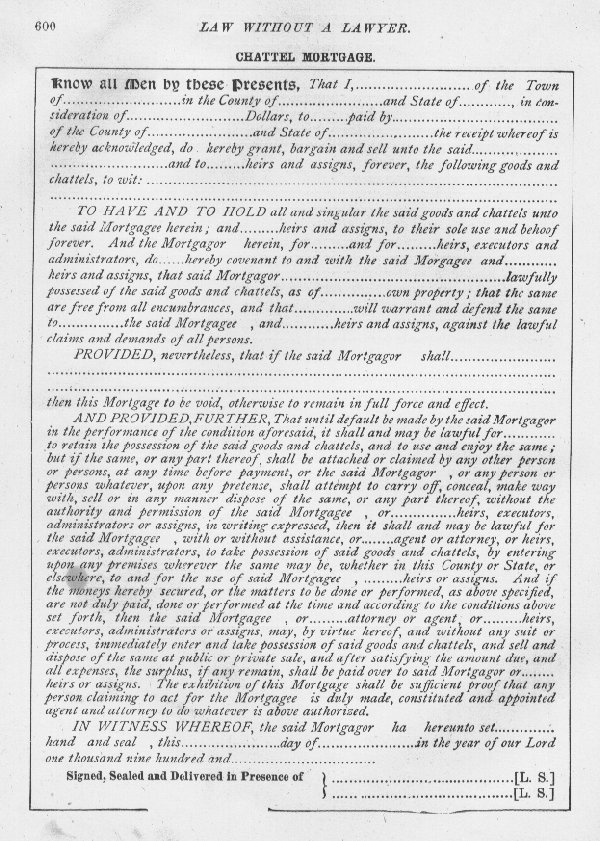 600 LAW WITHOUT A LAWYER.
CHATTEL MORTGAGE.
Know all Men by these Presents, That I,..............................of the Town
of..............................in the County of..........................and State of............., in con-
sideration of..............................Dollars, to.........paid by.........................................
of the County of..........................and State of..........................the receipt whereof is
hereby acknowledged, do hereby grant, bargain and sell unto the said.....................
..............................and to.........heirs and assigns, forever, the following goods and
chattels, to wit: ....................................................................................................
..............................................................................................................................
TO HAVE AND TO HOLD all and singular the said goods and chattels unto
the said Mortgagee herein; and.........heirs and assigns, to their sole use and behoof
forever. And the Mortgagor herein, for.........and for.........heirs, executors and
administrators, do.......hereby covenant to and with the said Morgagee and.............
heirs and assigns, that said Mortgagor.......................................................lawfully
possessed of the said goods and chattels, as of................own property; that the same
are free from all encumbrances, and that..............will warrant and defend the same
to................the said Mortgagee , and.............heirs and assigns, against the lawful
claims and demands of all persons.
PROVIDED, nevertheless, that if the said Mortgagor shall..........................
..............................................................................................................................
..............................................................................................................................
then this Mortgage to be void, otherwise to remain in full force and effect.
AND PROVIDED, FURTHER, That until default be made by the said Mortgagor
in the performance of the condition aforesaid, it shall and may be lawful for.............
to retain the possession of the said goods and chattels, and to use and enjoy the same;
but if the same, or any part thereof, shall be attached or claimed by any other person
or persons, at any time before payment, or the said Mortgagor , or any person or
persons whatever, upon any pretense, shall attempt to carry off, conceal, make way
with, sell or in any manner dispose of the same, or any part thereof, without the
authority and permission of the said Mortgagee , or...............heirs, executors,
administrators or assigns, in writing expressed, then it shall and may be lawful for
the said Mortgagee , with or without assistance, or........agent or attorney, or heirs,
executors, administrators, to take possession of said goods and chattels, by entering
upon any premises wherever the same may be, whether in this County or State, or
elsewhere, to and for the use of said Mortgagee , .........heirs or assigns. And if
the moneys hereby secured, or the matters to be done or performed, as above specified,
are not duly paid, done or performed at the time and according to the conditions above
set forth, then the said Mortgagee , or.........attorney or agent, or.........heirs,
executors, administrators or assigns, may, by virtue hereof, and without any suit or
process, immediately enter and take possession of said goods and chattels, and sell and
dispose of the same at public or private sale, and after satisfying the amount due, and
all expenses, the surplus, if any remain, shall be paid over to said Mortgagor or........
heirs or assigns. The exhibition of this Mortgage shall be sufficient proof that any
person claiming to act for the Mortgagee is duly made, constituted and appointed
agent and attorney to do whatever is above authorized.
IN WITNESS WHEREOF, the said Mortgagor ha hereunto set..............
hand and seal , this........................day of........................in the year of our Lord
one thousand nine hundred and....................................
Signed, Sealed and Delivered in Presence of } .............................................[L. S.]
.............................................[L. S.]